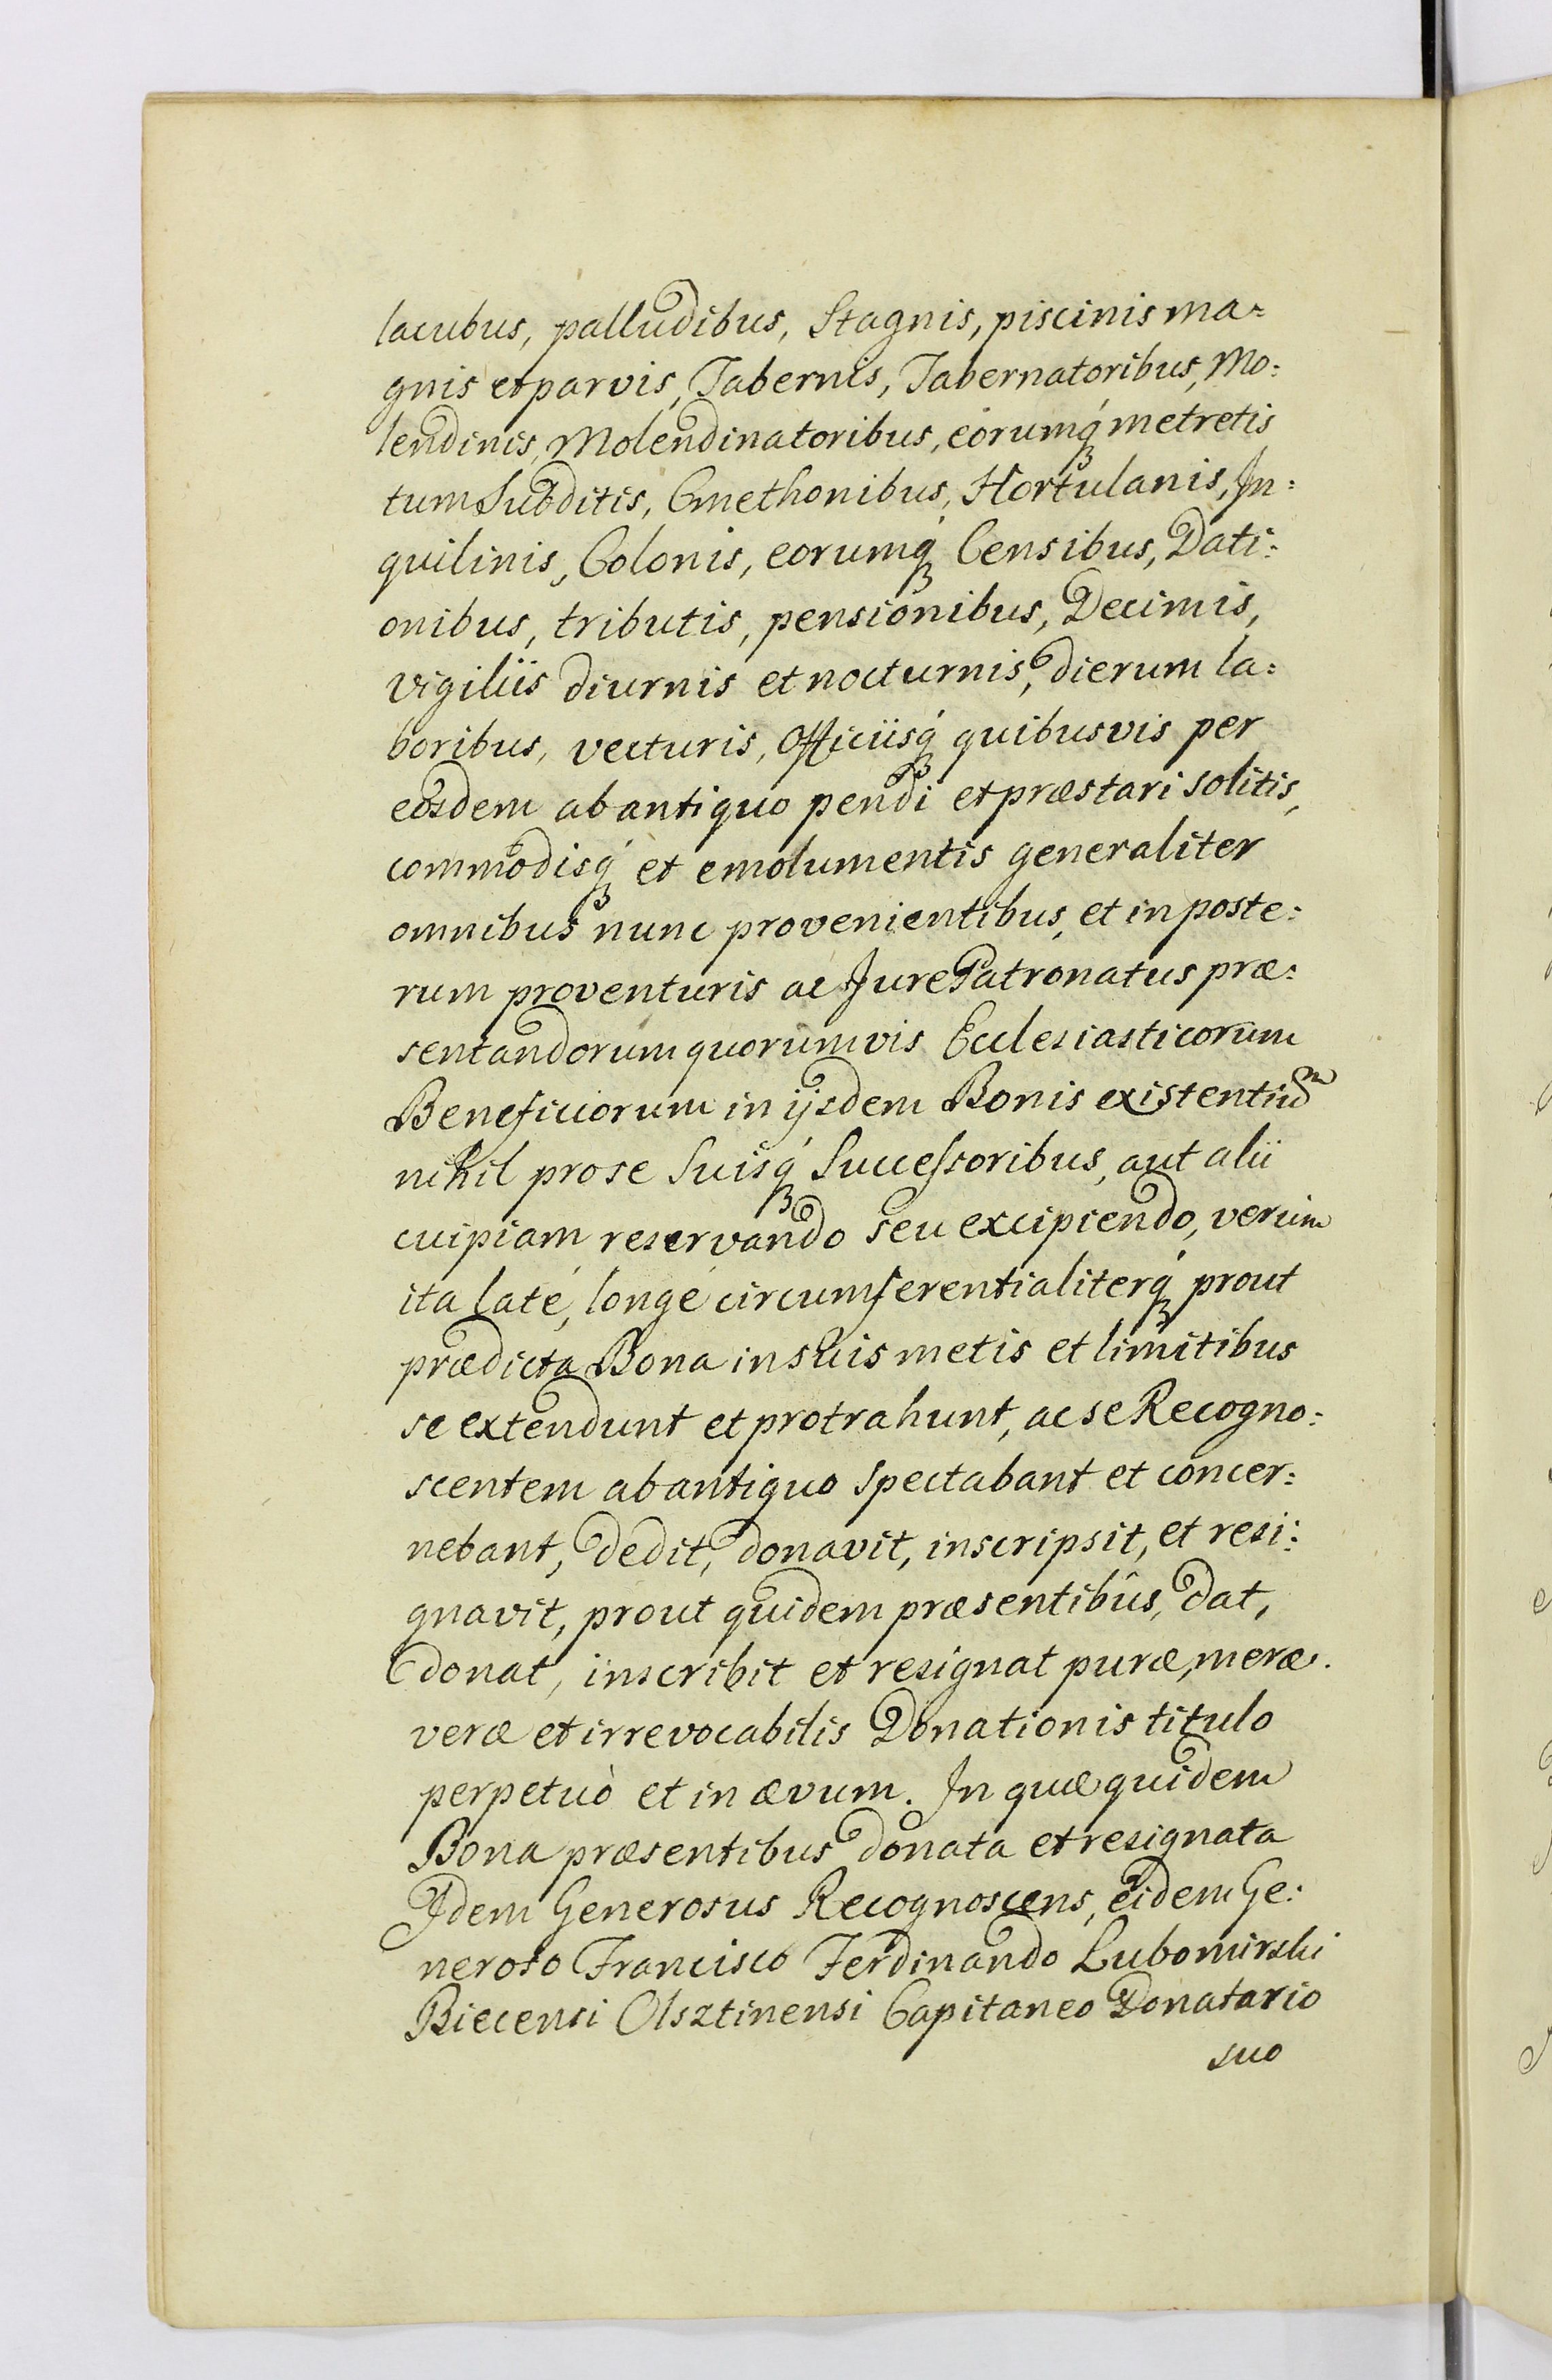 lacubus, palludibus, Stagnis, piscinis ma=
gnis et parvis, Tabernis, Tabernatoribus, Mo:
lendinis, Molendinatoribus, eorumq́ metretis
tum Subditis, Cmethonibus, Hortulanis, In:
quilinis, Colonis, eorumq́ Censibus, Dati:
onibus, tributis, pensionibus, Decimis,
vigiliis diurnis et nocturnis, dierum la:
boribus, vecturis, Officiisq́ quibusvis per
eosdem ab antiquo pendi et præstari solitis,
commodisq́ et emolumentis generaliter
omnibus nunc provenientibus, et in poste:
rum proventuris ac Jure Patronatus præ:
sentandorum quorumvis Ecclesiasticorum
Beneficiorum in ijsdem Bonis existentiũm
nihil pro se Suisq́ Succeſsoribus, aut alii
cuipiam reservando seu excipiendo, verum
ita laté, longé circumferentialiterq́ prout
prædicta Bona in suis metis et limitibus
se extendunt et protrahunt, ac se Recogno:
scentem ab antiquo spectabant et concer:
nebant, dedit, donavit, inscripsit, et resi:
gnavit, prout quidem præsentibûs, dat,
donat, inscribit et resignat puræ, meræ.
veræ et irrevocabilis Donationis titulo
perpetuò et in ævum. In quæ quidem
Bona præsentibus donata et resignata
Idem Generosus Recognoscens, eidem Ge:
neroso Francisco Ferdinando Lubomirski
Biecensi Olsztinensi Capitaneo Donatario
suo